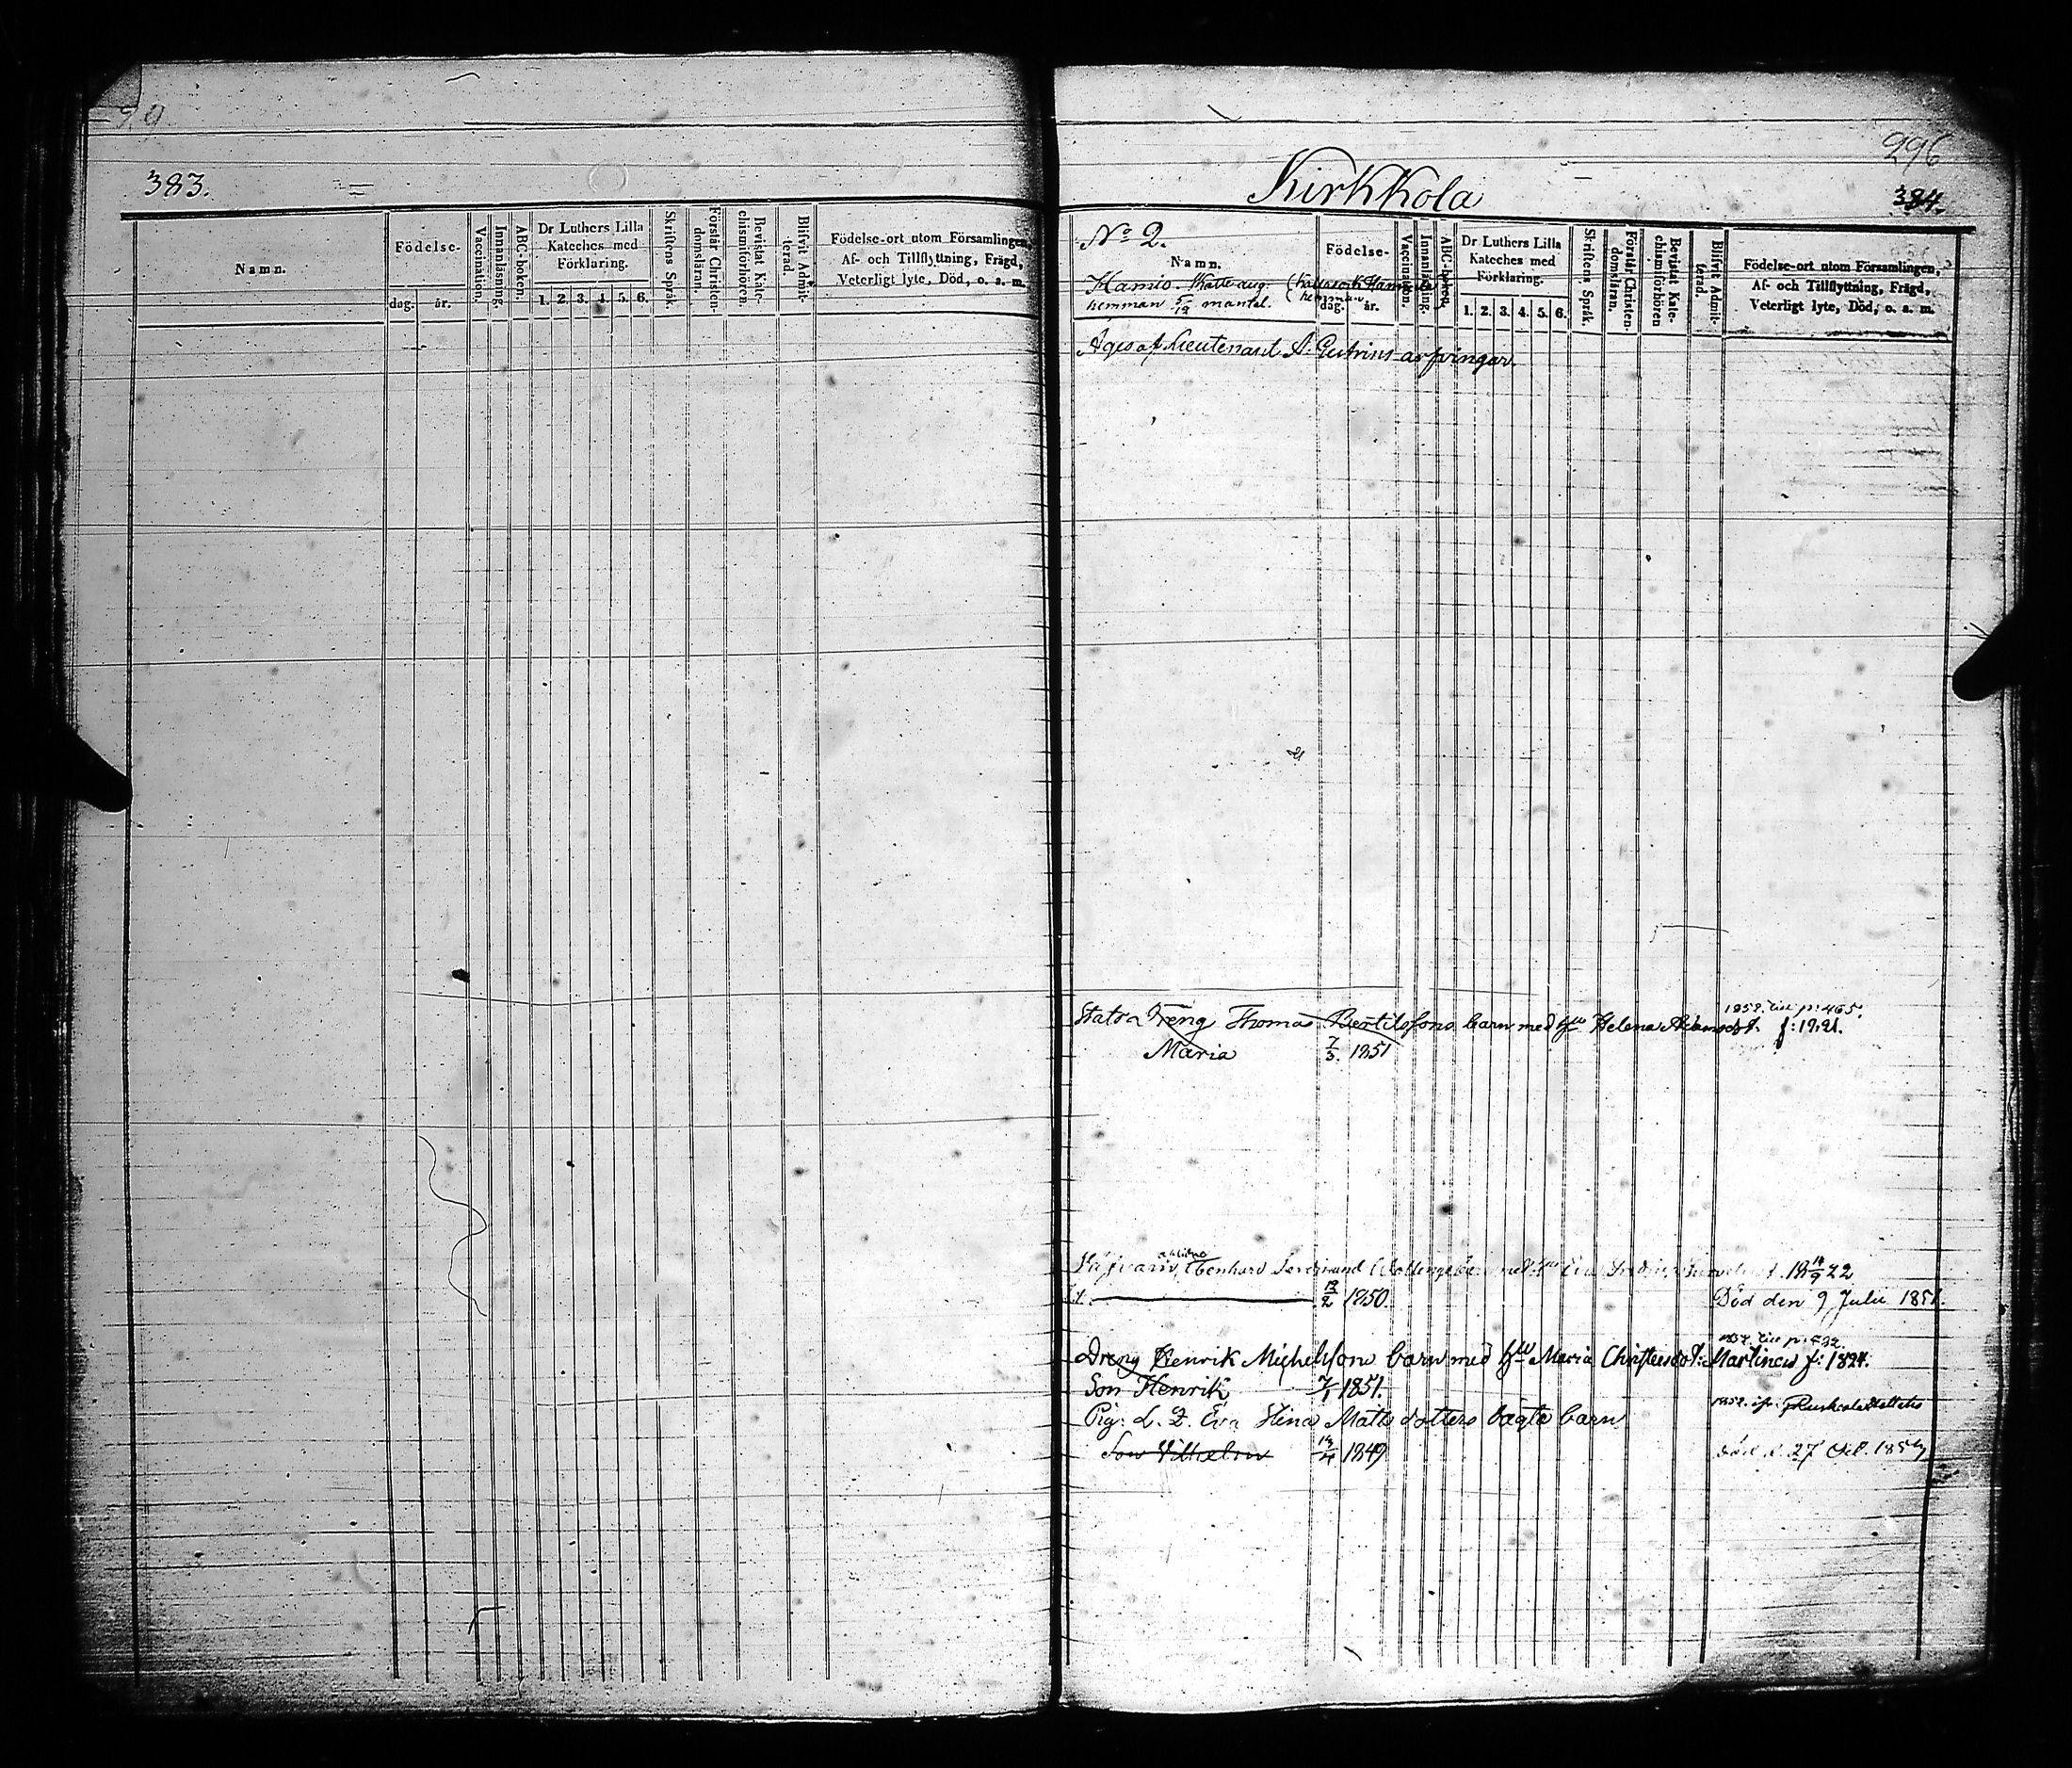 383.
Namn.
Födelse-
dag. år.
Vaccination.
Innanläsning.
ABC-boken.
Dr Luthers Lilla
Kateches med
Förklaring.
1. 2. 3. 4. 5. 6.
Skriftens Språk.
Förstår Christen-
domsläran.
Bevistat Kate-
chismiförhören.
Blifvit Admit-
terad.
Födelse-ort utom Församlingen,
Af- och Tillflyttning, Frägd,
Veterligt lyte, Död, o. a. m.
296
Kirkkola
384.
No 2.
Namn.
Kamio Skatte aug.
hemman 5/12 mantel.
Födelse-
dag. år.
Vaccination.
Innanläsning.
ABC-boken.
Dr Luthers Lilla
Kateches med
Förklaring.
1. 2. 3. 4. 5. 6.
Skriftens Språk.
Förstår Christen-
domsläran.
Bevistat Kate-
chismiförhören
Blifvit Admit-
terad.
Födelse-ort utom Församlingen,
Af- och Tillflyttning, Frägd,
Veterligt lyte, Död, o. a. m.
Äges af Lieutenant A. arfvingar.
1852. till p: 465.
Stats Dreng Thomas Bertilssons barn med hu Helena Adamsdt. f: 1821.
Maria 7/3. 1851
Ferdinand 18 14/9 22
13/2 1850. Död den 9 Julii 1851.
Dreng Henrik Michelssons barn med hu Maria Christersdot: Martinen f: 1824.
Son Henrik 7/1 1851.
Pig: L. F. Eva Stina Matts dotters oägta barn
Son Vilhelm 14/4 1849 Död d. 27 Oct. 185